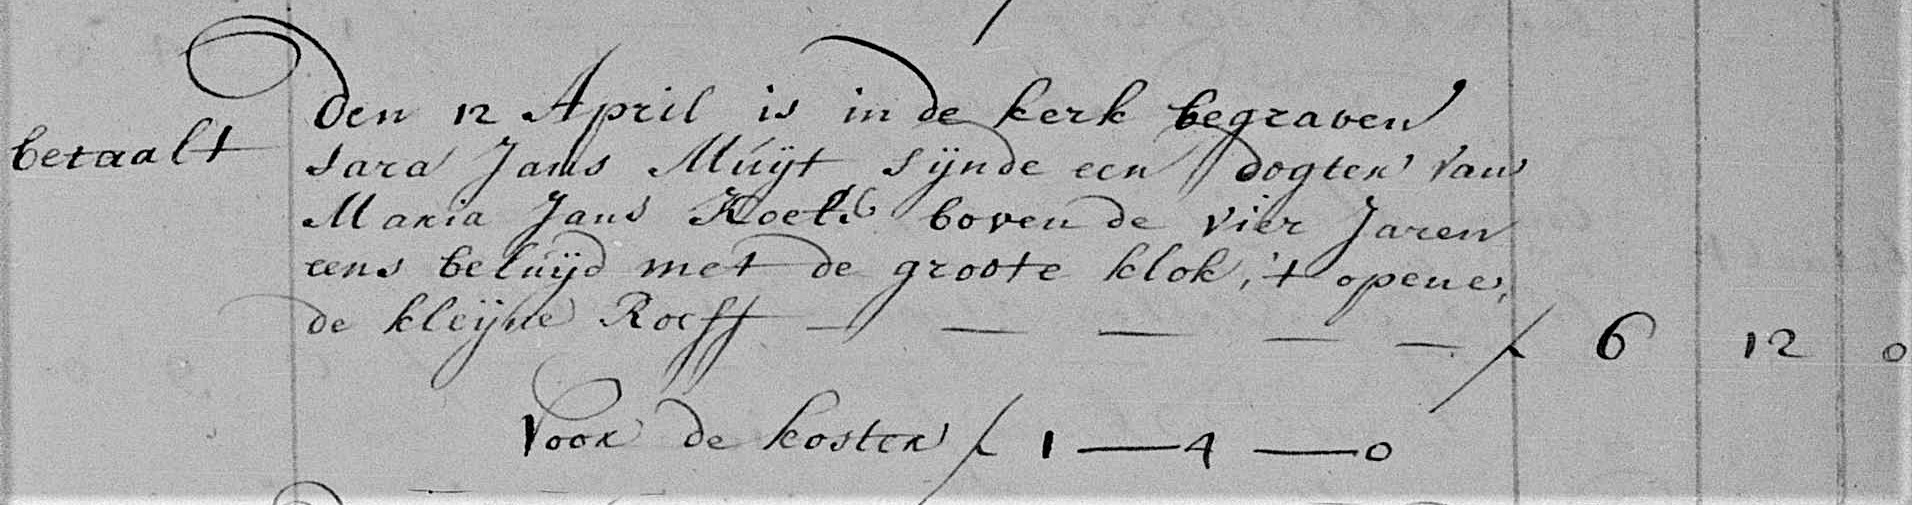 Den 12 April is in de kerk begraven
betaalt Sara Jans Muijt sijnde een dogter van
Maria Jans Roels boven de vier Jaren
eens beluijd met de groote klok, 't opene,
de kleijne Roeff — — — — — ƒ 6 12 0
Voor de koster ƒ 1 — 4 — 0